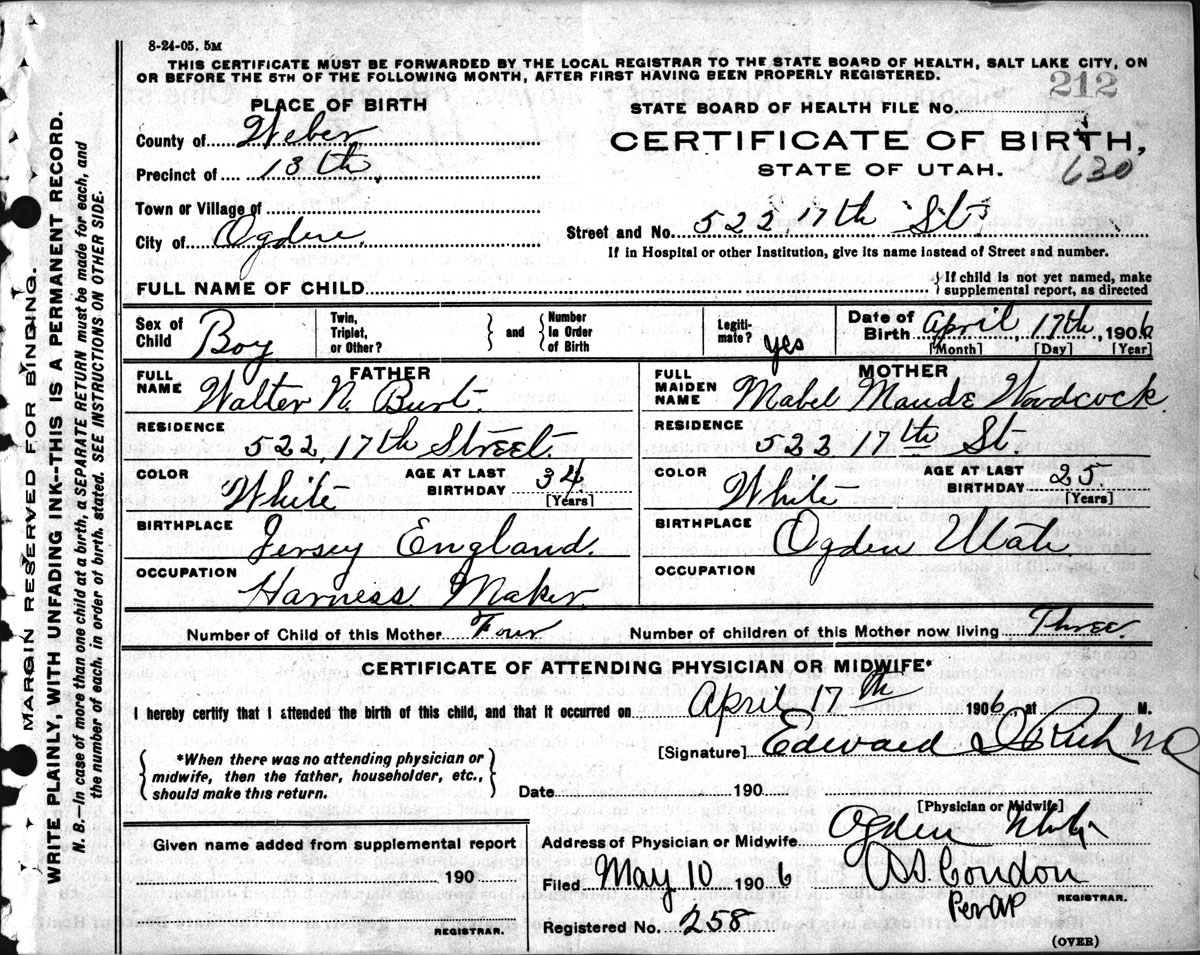 8-24-05. 5M
THIS CERTIFICATE MUST BE FORWARDED BY THE LOCAL REGISTRAR TO THE STATE BOARD OF HEALTH, SALT LAKE CITY, ON
OR BEFORE THE 5TH OF THE FOLLOWING MONTH, AFTER FIRST HAVING BEEN PROPERLY REGISTERED.
212
PLACE OF BIRTH
STATE BOARD OF HEALTH FILE NO.
County of Weber
CERTIFICATE OF BIRTH,
Precinct of 13th.
STATE OF UTAH.
630
Town or Village of
City of Ogden.
Street and No. 522, 17th St,
If in Hospital or other Institution, give its name instead of Street and number.
FULL NAME OF CHILD
{If child is not yet named, make
supplemental report, as directed
Sex of Child Boy
Twin, Triplet, or Other?
} and {
Number In Order of Birth
Legiti-mate? yes
Date of Birth April, 17th, 1906
[Month] [Day] [Year]
FATHER
FULL NAME Walter N. Burt.
MOTHER
FULL MAIDEN NAME Mabel Maude Woodcock.
RESIDENCE 522, 17th Street.
RESIDENCE 522 17th St.
COLOR White
AGE AT LAST BIRTHDAY 34.
[Years]
COLOR White
AGE AT LAST BIRTHDAY 25.
[Years]
BIRTHPLACE Jersey England.
BIRTHPLACE Ogden Utah.
OCCUPATION Harness Maker.
OCCUPATION
Number of Child of this Mother Four
Number of children of this Mother now living Three.
CERTIFICATE OF ATTENDING PHYSICIAN OR MIDWIFE*
I hereby certify that I attended the birth of this child, and that it occurred on April 17th 1906, at M.
[Signature] Edward I Rich MD
*When there was no attending physician or
midwife, then the father, householder, etc.,
should make this return.
Date 190
[Physician or Midwife]
Given name added from supplemental report
190
REGISTRAR.
Address of Physician or Midwife Ogden Utah
Filed May 10 1906 A.S. Condon
REGISTRAR.
Per AP
Registered No. 258
(OVER)
MARGIN RESERVED FOR BINDING.
WRITE PLAINLY, WITH UNFADING INK--THIS IS A PERMANENT RECORD.
N. B.—In case of more than one child at a birth, a SEPARATE RETURN must be made for each, and
the number of each, in order of birth, stated. SEE INSTRUCTIONS ON OTHER SIDE.